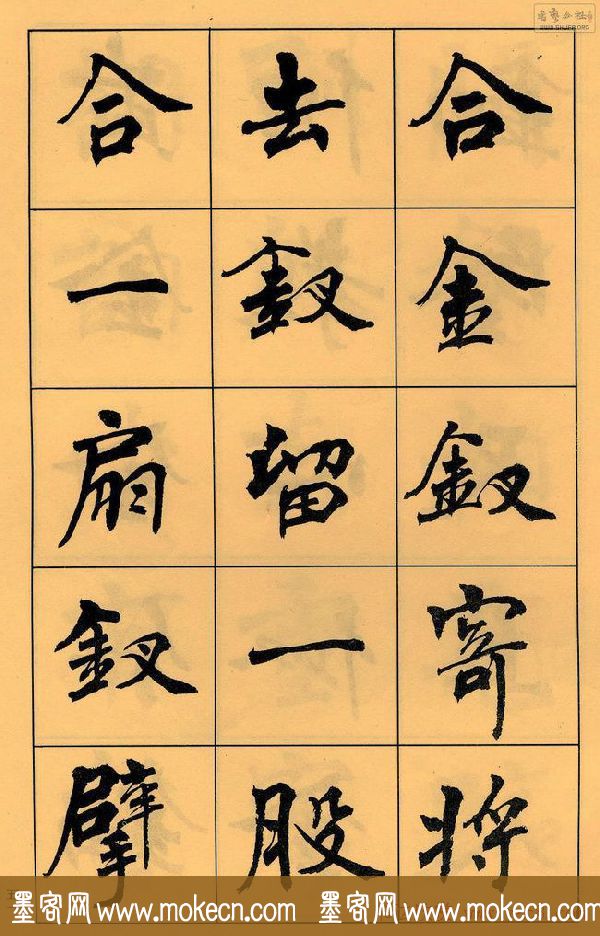 合金釵寄将
去釵留一股
合一扇釵擘
墨客网 www.mokecn.com 墨客网 www.mokecn.com